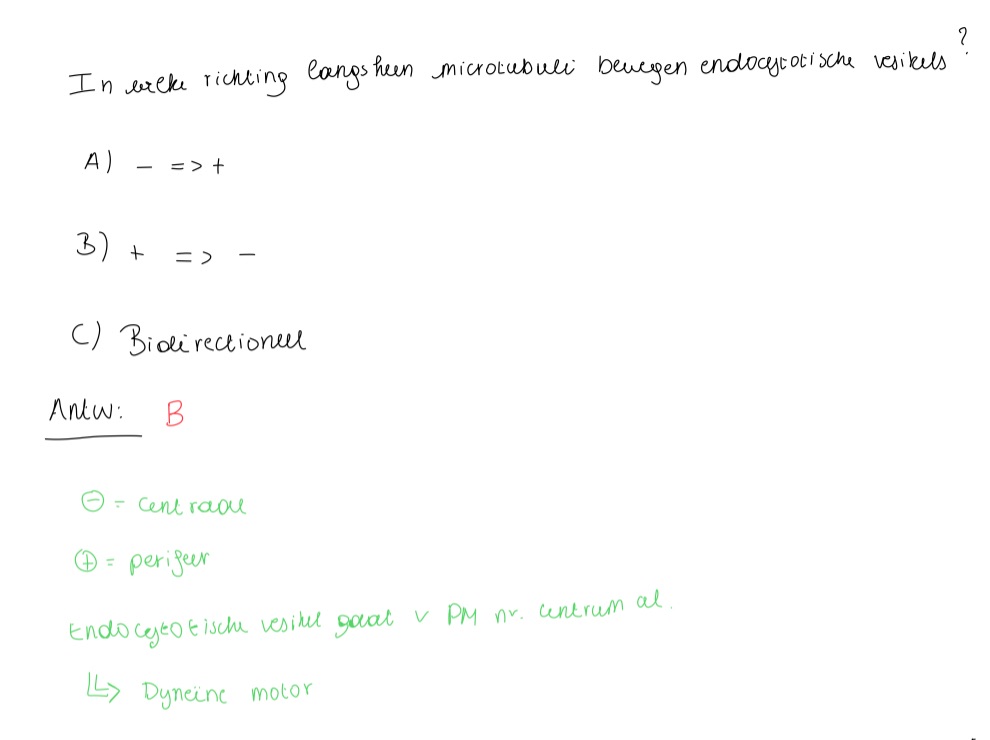 In welke richting langsheen microtubuli bewegen endocytotische vesikels ?
A) - => +
B) + => -
C) Bidirectioneel
Antw: B
⊖ = centraal
⊕ = perifeer
Endocytotische vesikel gaat v PM nr. centrum cel.
↳> Dyneïne motor